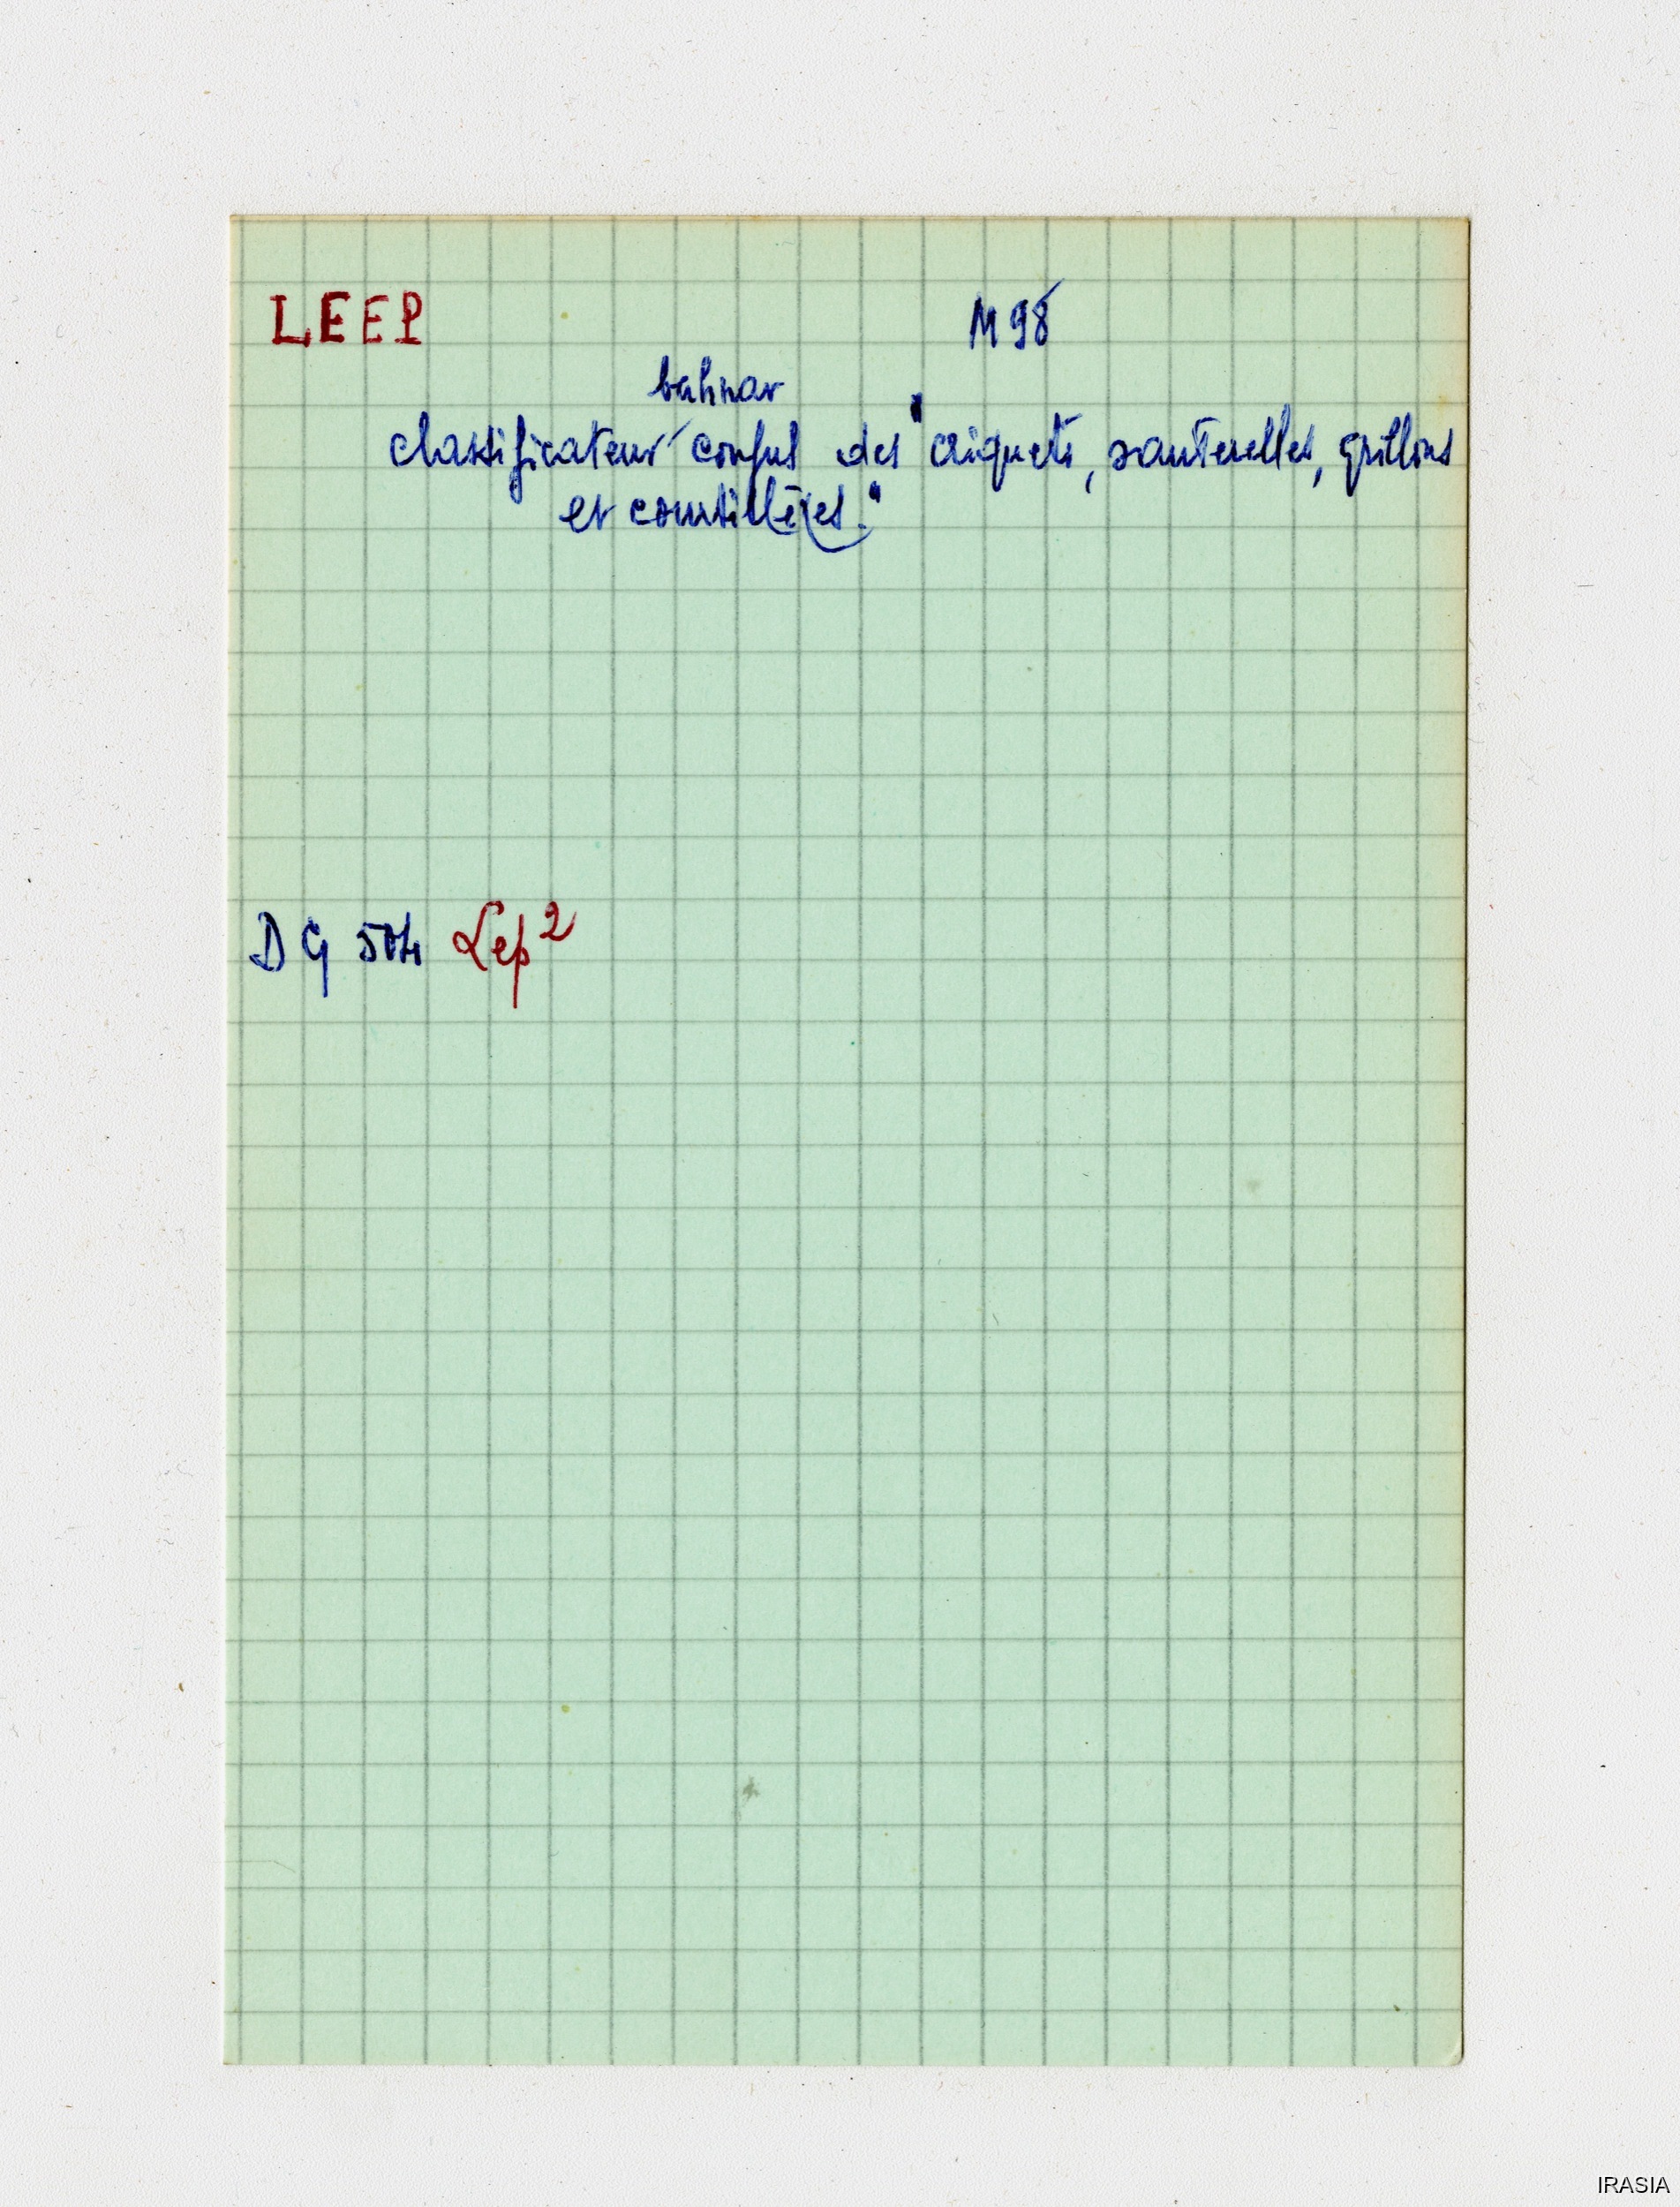 LEEP M 98
bahnar
classificateur confus des "criquets, sauterelles, grillons
et courtilières."
DG 504 Lep²
IRASIA